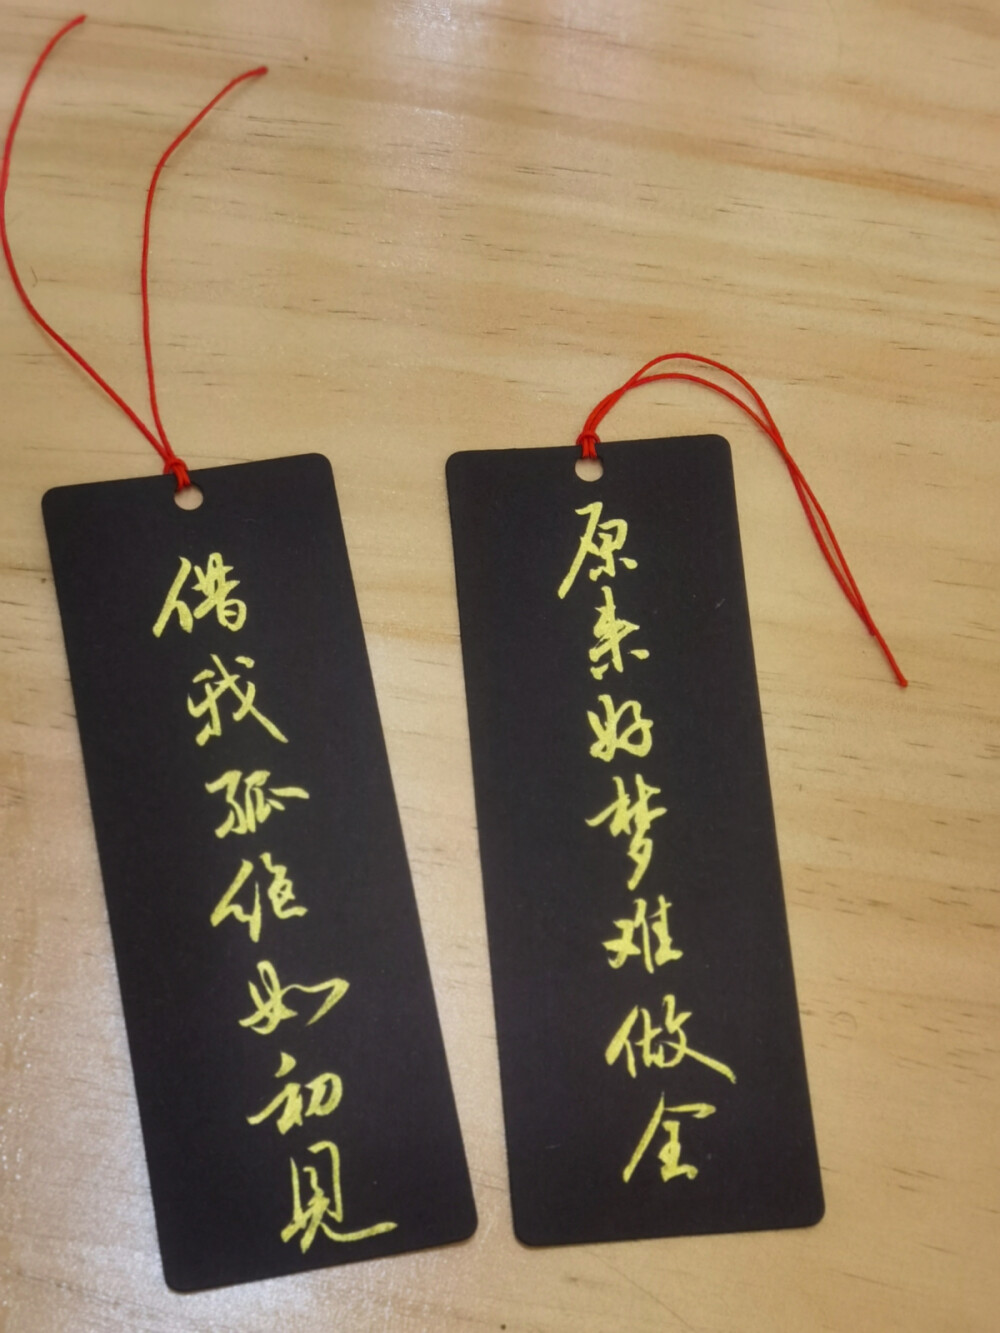 借我孤绝如初见
原来好梦难做全